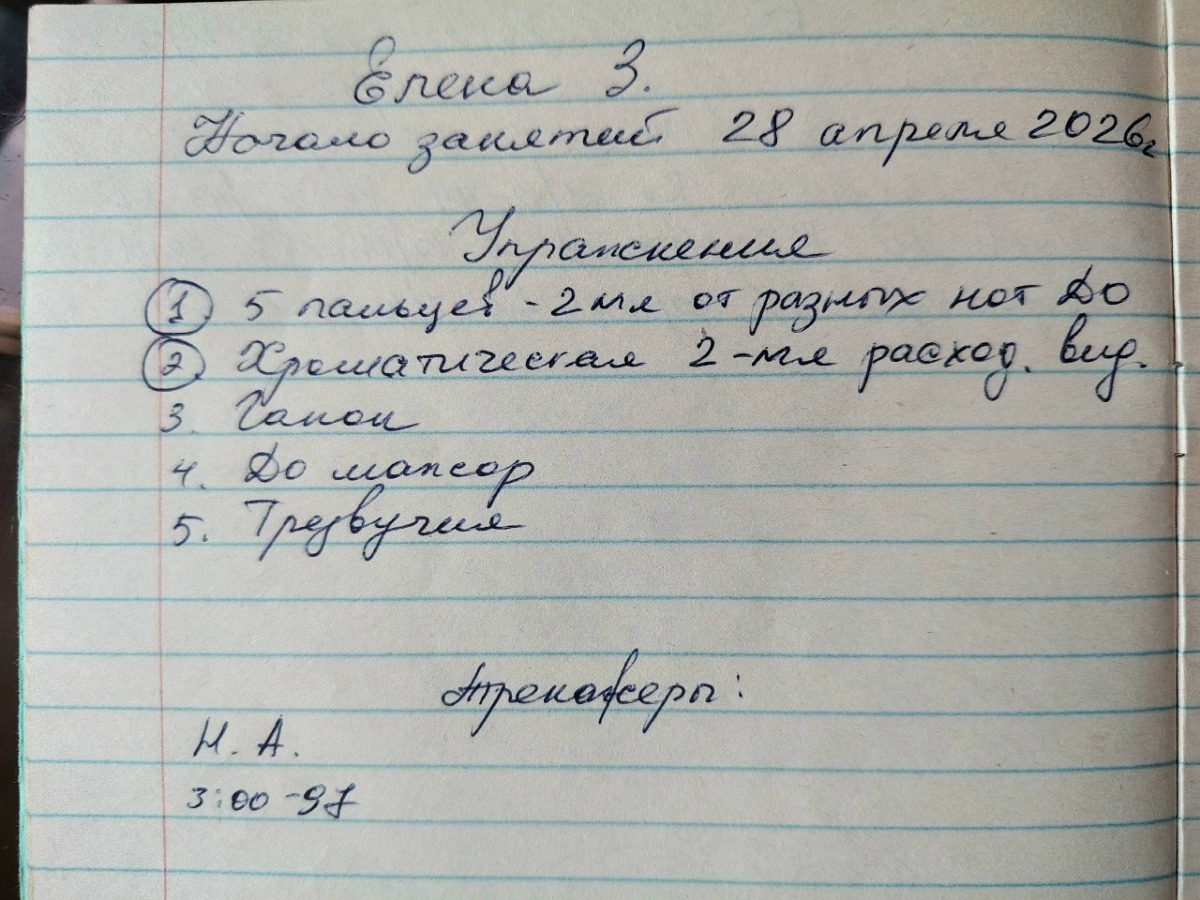 Елена З.
Начало занятий 28 апреля 2026г
Упражнения
1. 5 пальцев - 2мя от разных нот До
2. Хроматическая 2-мя расход. вид.
3. Ганон
4. До мажор
5. Трезвучия
Тренажеры:
Н. А.
3:00 - 97